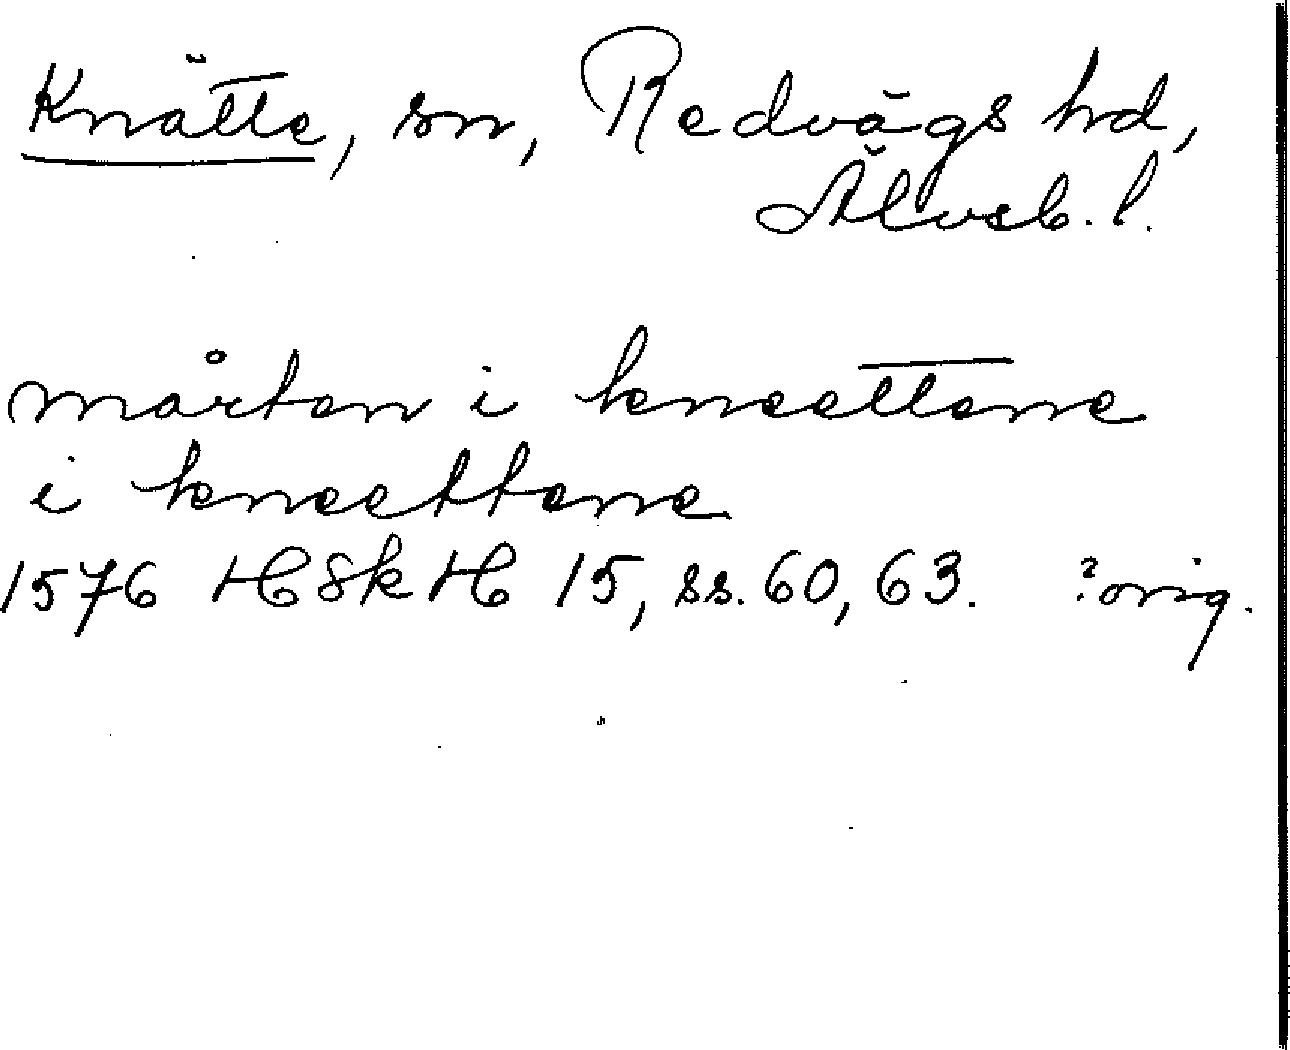 Knätte, sn, Redvägs hd,
Älvsb. l.
mårten i kneettene
i kneettene
1576 HSkH 15, ss. 60, 63. ?orig.